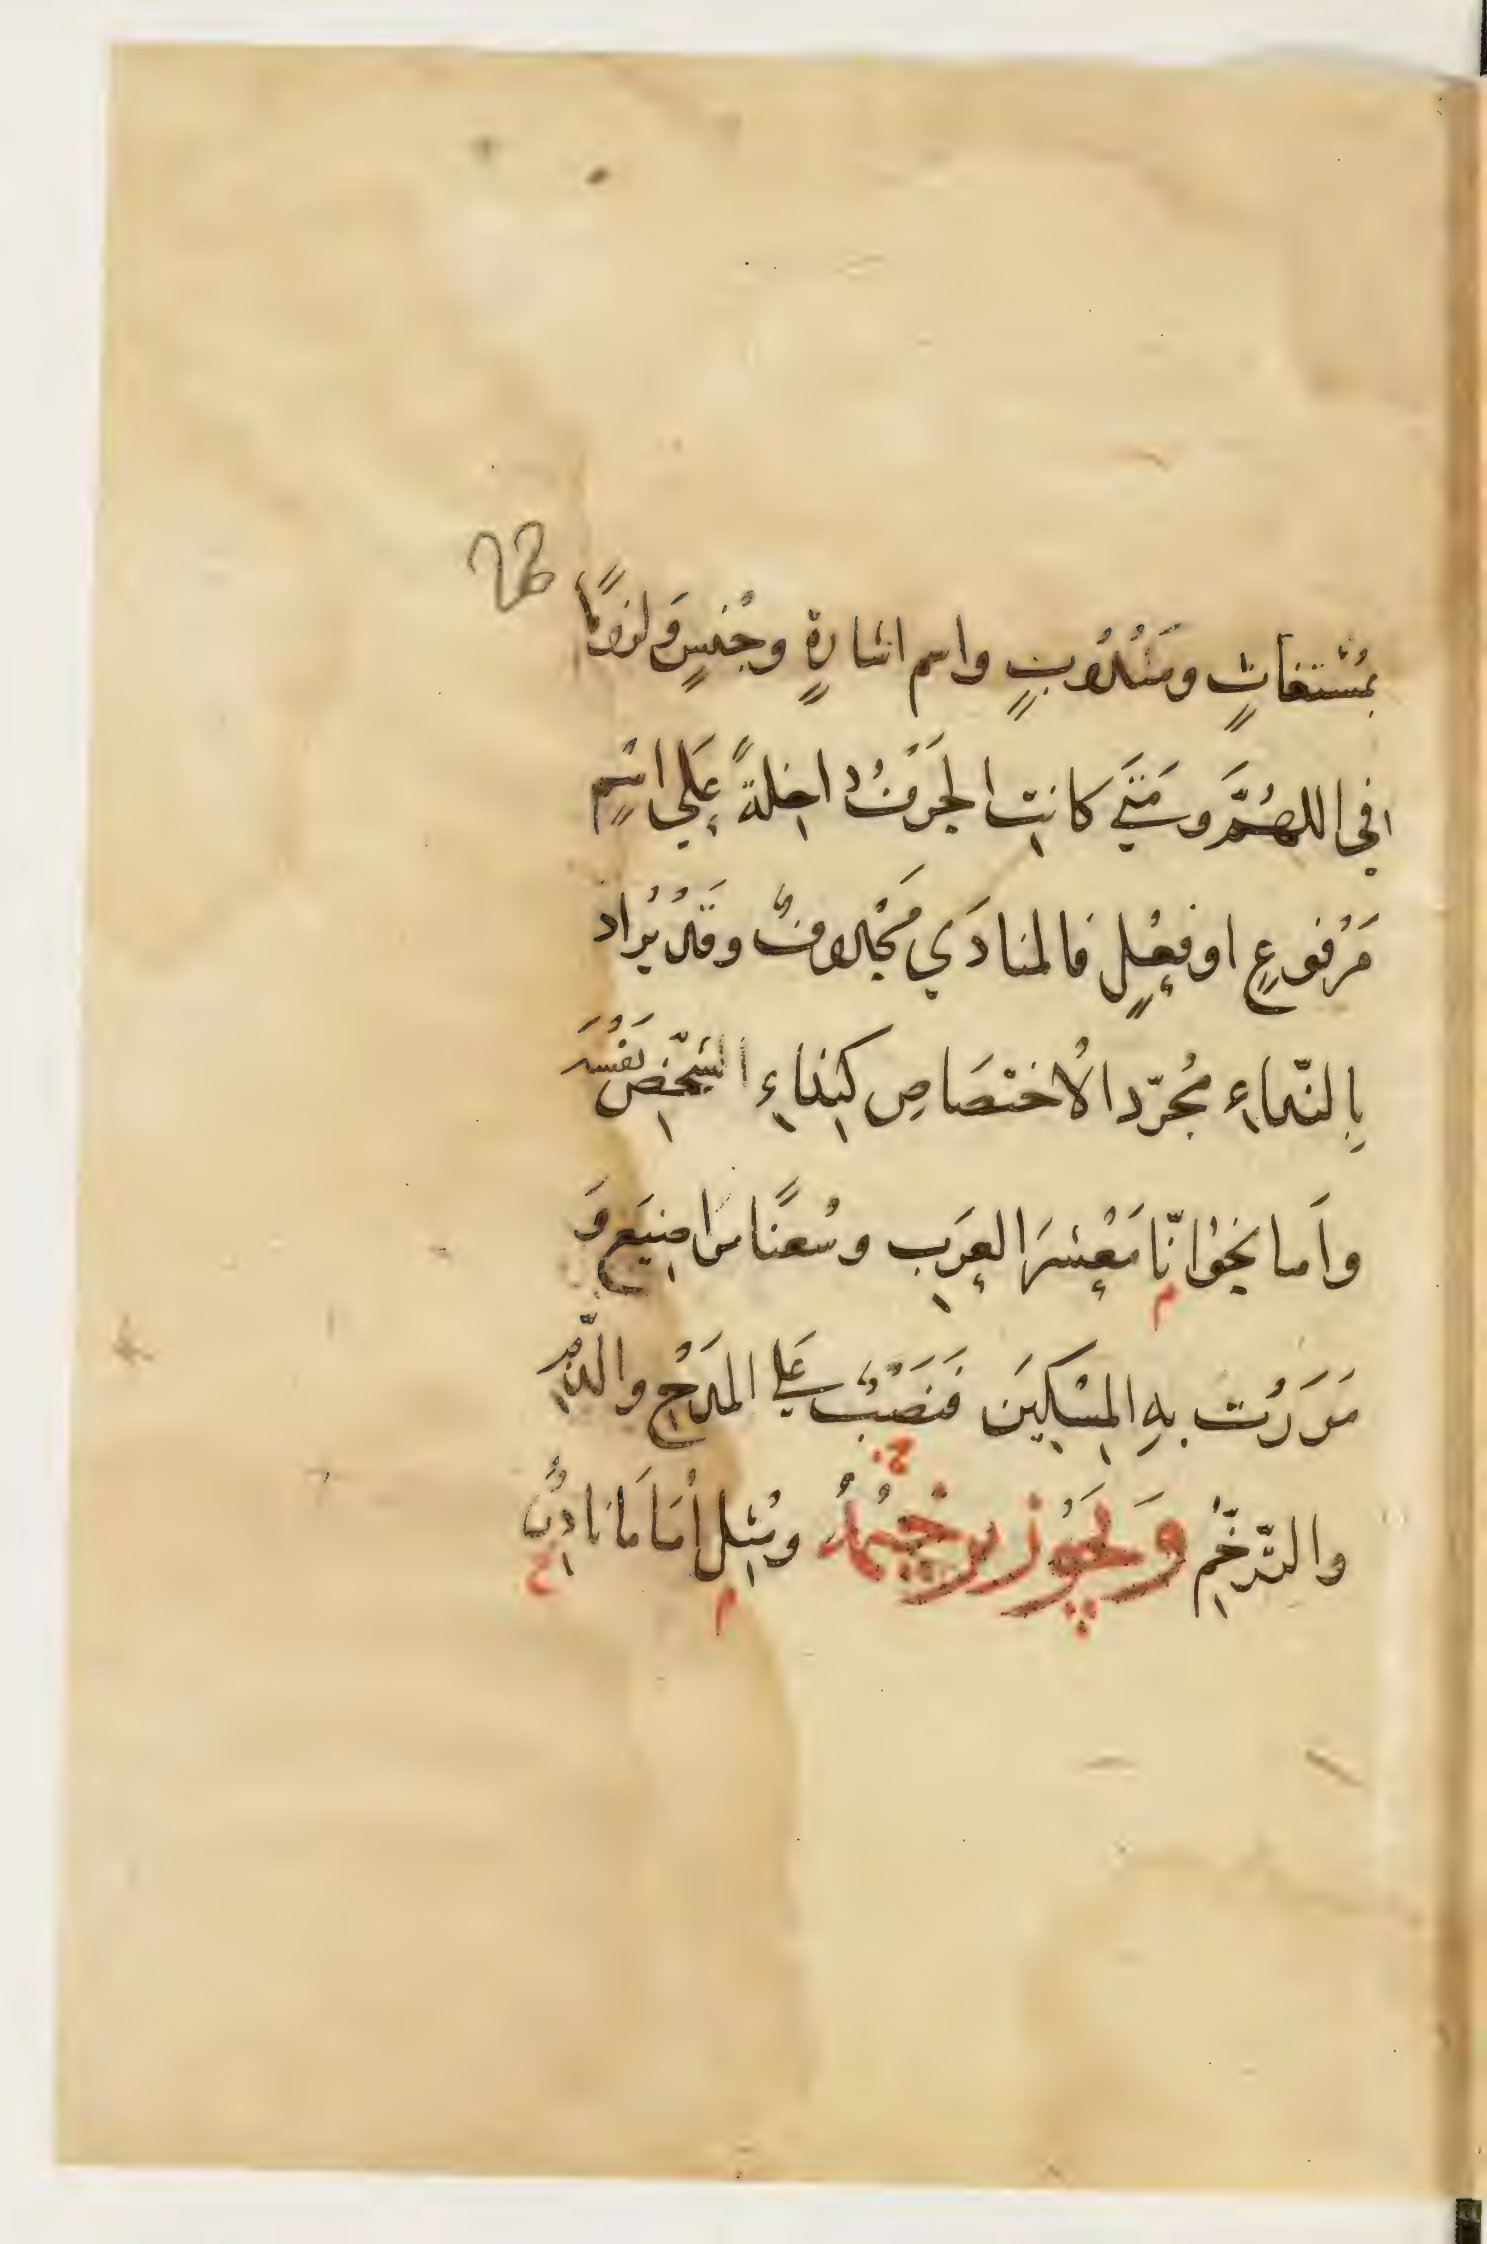 بِمُسْتَغَاثٍ وَمَنْدُوبٍ واسم اشارةٍ وجِنسٍ وَلزومًا
في اللهُمَّ وَمَتَي كانتِ الحَرْفُ داخلةً عَلي اسْمٍ
مَرْفوعٍ او فِعْلٍ فالمنادَي مَحْذوفٌ وقَدْ يُرَاد
بِالنّداءِ مُجرّد الاخْتصَاصِ كَنِداءِ الشّخْصِ نَفْسَه
وأَما نحوُ انّا مَعْشرَ العرَبِ وسُعنًا
مَرَرْت بِهِ المِسْكِينَ فَنَصْبٌ عَلي المَدْحِ والذّمِّ
والتّرَحُّمِ وَيَجُوز ترخيْمُهُ ومِثل أمَامَا نادِ